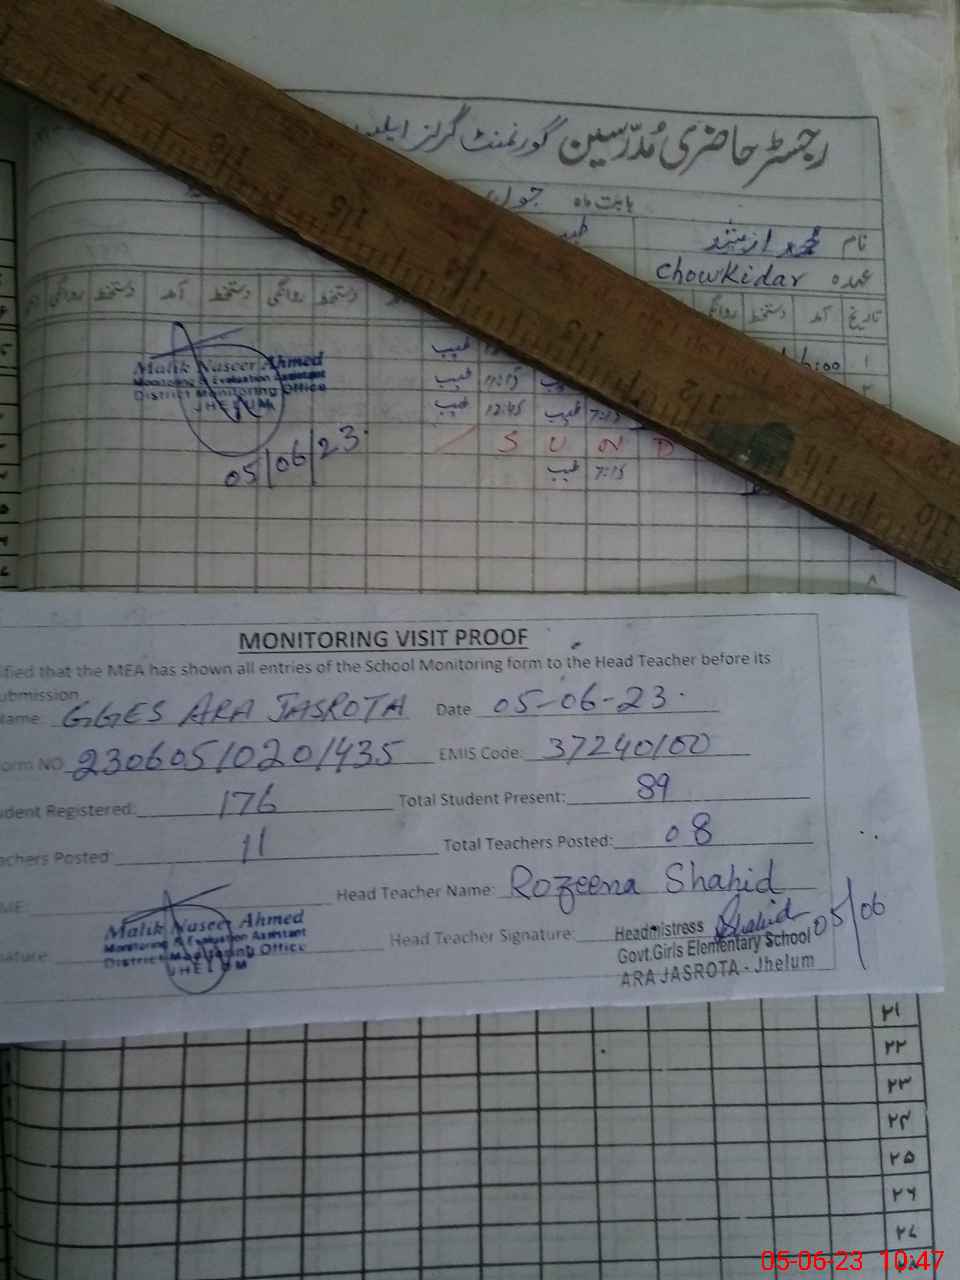 رجسٹر حاضری مُدرّسین گورنمنٹ گرلز
بابت ماہ
نام محمد ارشد طیب
عہدہ Chowkidar
تاریخ آمد دستخط روانگی دستخط روانگی دستخط آمد دستخط روانگی
Malik Naseer Ahmed
Monitoring & Evaluation Assistant
District Monitoring Office
JHELUM
05/06/23
۱ 6:00 طیب
طیب 11:15
طیب 12:45 طیب 7:15
S U N D
طیب 7:15
۸
MONITORING VISIT PROOF
ified that the MEA has shown all entries of the School Monitoring form to the Head Teacher before its
ubmission
Name: GGES ARA JASROTA Date 05-06-23
orm NO 23060510201435 EMIS Code: 37240100
udent Registered: 176 Total Student Present: 89
achers Posted: 11 Total Teachers Posted: 08
ME: Head Teacher Name: Rozeena Shahid
Malik Naseer Ahmed
Monitoring & Evaluation Assistant
District Monitoring Office
JHELUM
nature: Head Teacher Signature: Shahid 05/06
Headmistress
Govt.Girls Elementary School
ARA JASROTA - Jhelum
۲۱
۲۲
۲۳
۲۴
۲۵
۲۶
۲۷
۲۸
05-06-23 10:47